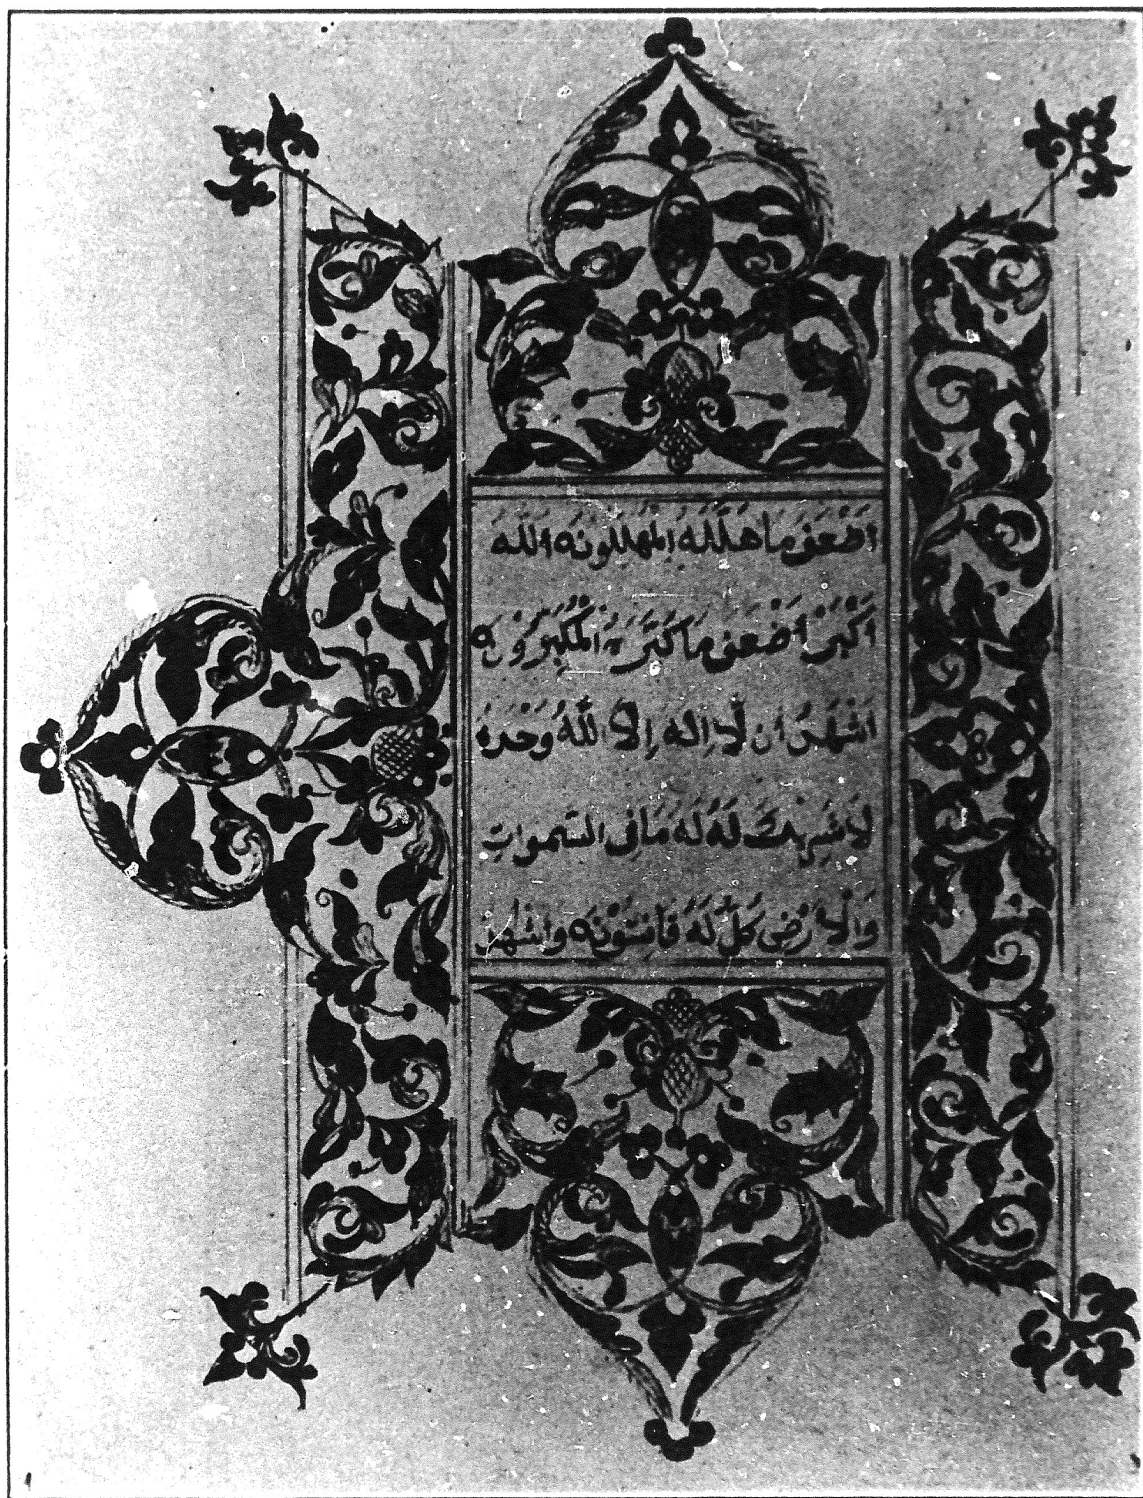 اَضْعَفَ مَا هَلَّلَهُ اَلْمُهَلِّلُونَ اَللّٰهُ
اَكْبَرُ اَضْعَفَ مَا كَبَّرَهُ الْمُكَبِّرُونَ
اَشْهَدُ اَنْ لَّا اِلٰهَ اِلَّا اللّٰهُ وَحْدَهُ
لَا شَرِيكَ لَهُ لَهُ مَا فِى السَّمٰوَاتِ
وَالْاَرْضِ كُلٌّ لَهُ قَانِتُونَ وَاَشْهَدُ